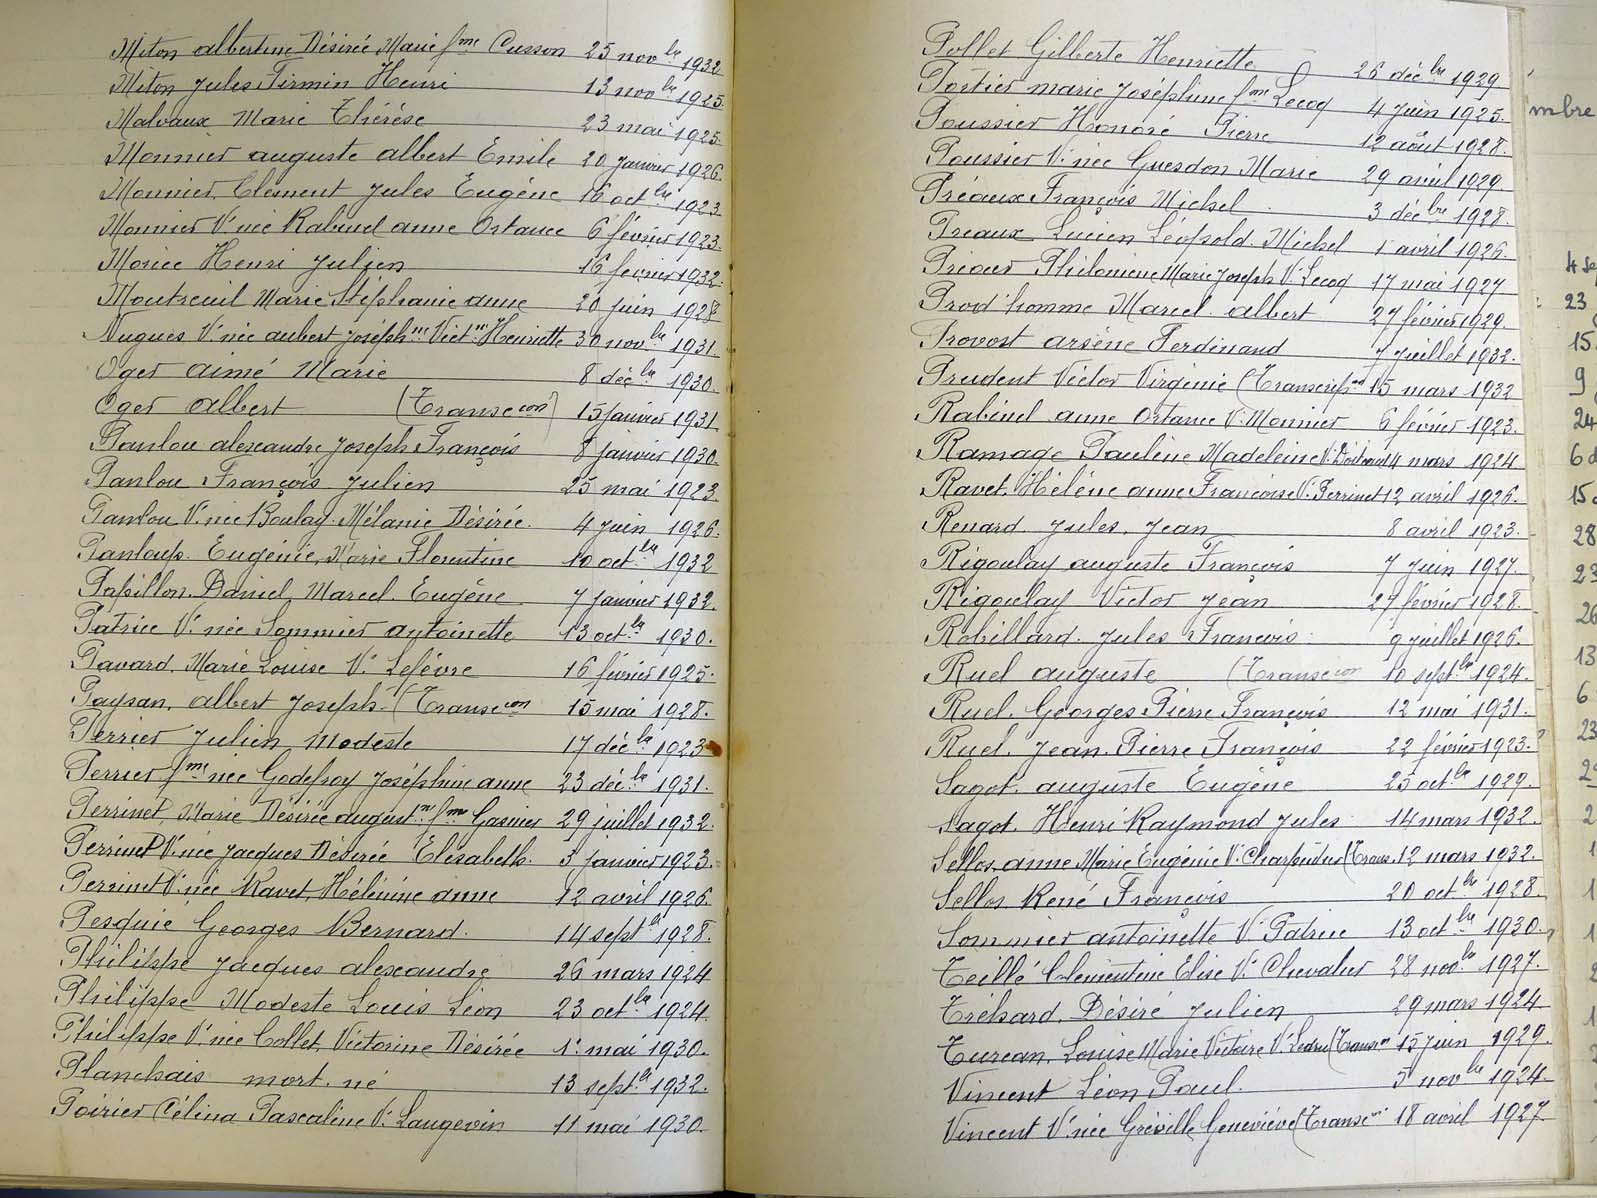 Miton albertine Désirée Marie fme Cusson 25 novbre 1932
Miton Jules Firmin Henri 13 novbre 1925.
Malvaux Marie Thérèse 23 mai 1925.
Monnier auguste albert Emile 20 janvier 1926.
Monnier Clément Jules Eugène 16 octbre 1923
Monnier Ve née Rabinel anne Ortance 6 février 1923.
Morice Henri Julien 16 février 1932.
Montreuil Marie Stéphanie anne 20 juin 1928
Nugues Ve née aubert Joséphne Victne Henriette 30 novbre 1931.
Oger aimé Marie 8 décbre 1930.
Oger albert (Transcon) 15 janvier 1931.
Panlou alexandre Joseph François 8 janvier 1930.
Panlou François Julien 25 mai 1923.
Panlou Ve née Boulay Mélanie Désirée. 4 juin 1926.
Panloup Eugénie Marie Florentine 10 octbre 1932
Papillon Daniel Marcel Eugène 7 janvier 1932.
Patrice Ve née Sommier antoinette 13 octbre 1930.
Pavard Marie Louise Ve Lefévre 16 février 1925.
Paysan albert Joseph (Transcon 15 mai 1928.
Perrier Julien Modeste 17 décbre 1923
Perrier fme née Godefroy Joséphine anne 23 décbre 1931.
Perrinet Marie Désirée augustne fme Gasnier 29 juillet 1932.
Perrinet Ve née Jacques Désirée Elisabeth. 3 janvier 1923.
Perrinet Ve née Ravet Hélénine anne 12 avril 1926.
Pesquié Georges Bernard. 14 septbre 1928.
Philippe Jacques alexandre 26 mars 1924
Philippe Modeste Louis Léon 23 octbre 1924.
Philippe Ve née Collet Victorine Désirée 1er mai 1930.
Planchais mort-né 13 septbre 1932.
Poirier Célina Pascaline Ve Langevin 11 mai 1930.
Pollet Gilberte Henriette 26 décbre 1929
Portier marie Joséphine fme Lecoq 4 juin 1925.
Poussier Honoré Pierre 12 août 1928.
Poussier Ve née Guesdon Marie 29 avril 1929.
Préaux François Michel 3 décbre 1928.
Préaux Lucien Léopold Michel 1er avril 1926.
Prieur Philomène Marie Joseph Ve Lecoq 17 mai 1927
Prod'homme Marcel albert 27 février 1929.
Provost arsène Ferdinand 7 juillet 1932.
Prudent Victor Virginie (Transcripon 15 mars 1932
Rabinel anne Ortance Ve Monnier 6 février 1923.
Ramage Pauline Madeleine Ve 14 mars 1924
Ravet Hélène anne Françoise Ve Perrinet 12 avril 1926.
Renard Jules Jean 8 avril 1923.
Rigoulay auguste François 7 juin 1927.
Rigoulay Victor Jean 27 février 1928.
Robillard Jules François 9 juillet 1926.
Ruel auguste (Transcon 10 septbre 1924.
Ruel Georges Pierre François 12 mai 1931.
Ruel Jean Pierre François 22 février 1923.
Sagot auguste Eugène 25 octbre 1929.
Sagot Henri Raymond Jules 14 mars 1932.
Sellos anne Marie Eugénie Ve (Trans. 12 mars 1932.
Sellos René François 20 octbre 1928.
Sommier antoinette Ve Patrice 13 octbre 1930.
Teillé Clémentine Elise Ve Chevalier 28 novbre 1927.
Tréhard Désiré Julien 29 mars 1924
Turcan Louise Marie Victoire Ve Ledru (Transon 15 juin 1929.
Vincent Léon Paul. 5 novbre 1924.
Vincent Ve née Gréville Geneviève (Transcon 18 avril 1927
mbre
23
15
9
24
6 d
15
28
23
26
13
6
23